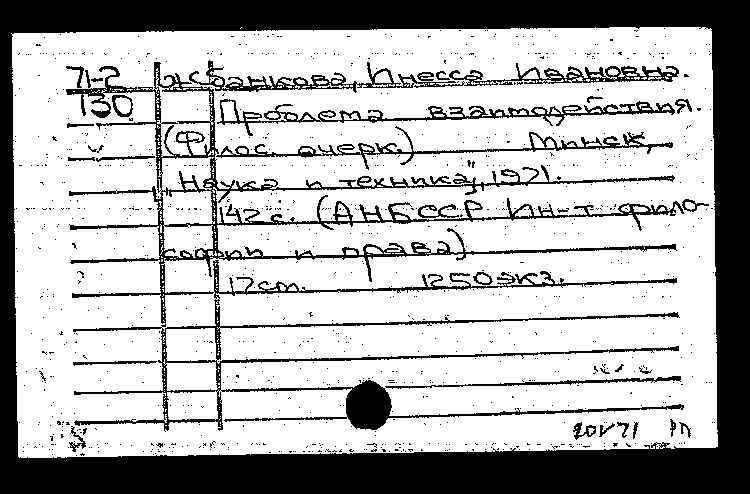 71-2 Жбанкова, Инесса Ивановна.
130 Проблема взаимодействия.
(Филос. очерк.) Минск,
"Наука и техника", 1971.
142 с. (АН БССР Ин-т фило-
софии и права)
17 cm. 1250 экз.
20V71 РП